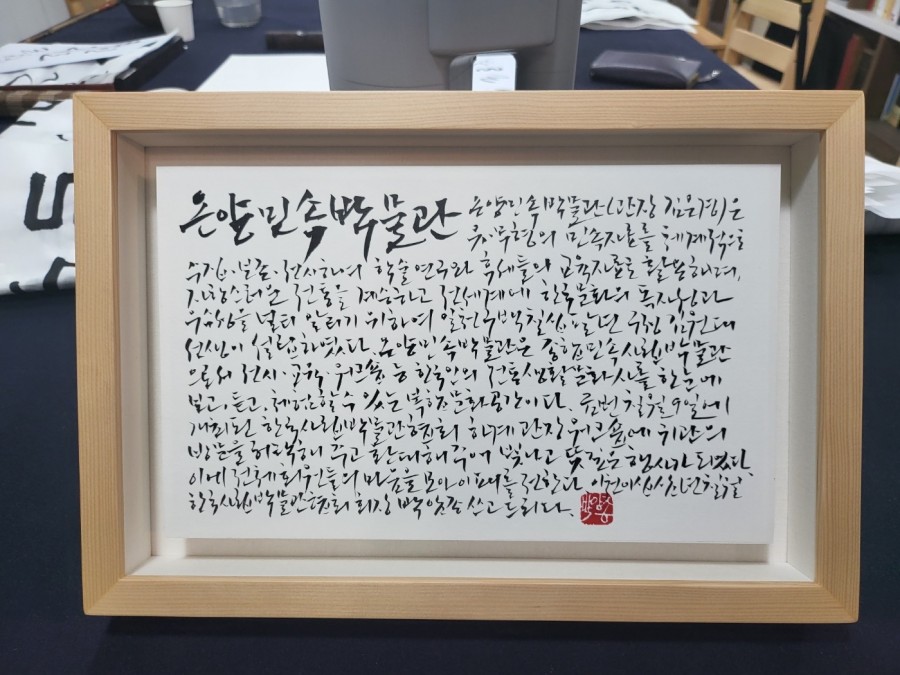 온양민속박물관
온양민속박물관(관장 김은경)은
유·무형의 민속자료를 체계적으로
수집·보존·전시하여 학술연구와 후세들의 교육자료로 활용하며,
자랑스러운 전통을 계승하고 전세계에 한국문화의 독자성과
우수성을 널리 알리기 위하여 일천구백칠십팔년 구정 김원대
선생이 설립하였다. 온양민속박물관은 종합민속사립박물관
으로써 전시·교육·워크숍 등 한국인의 전통생활문화사를 한눈에
보고, 듣고, 체험할 수 있는 복합문화공간이다. 금번 칠월 9일에
개최된 한국사립박물관협회 하계 관장 워크숍에 귀관의
방문을 허락해 주고 환대해주어 빛나고 뜻깊은 행사가 되었다.
이에 전체 회원들의 마음을 모아 이 패를 전한다. 이천이십삼년 칠월
한국사립박물관협회 회장 박암종 쓰고 드리다.